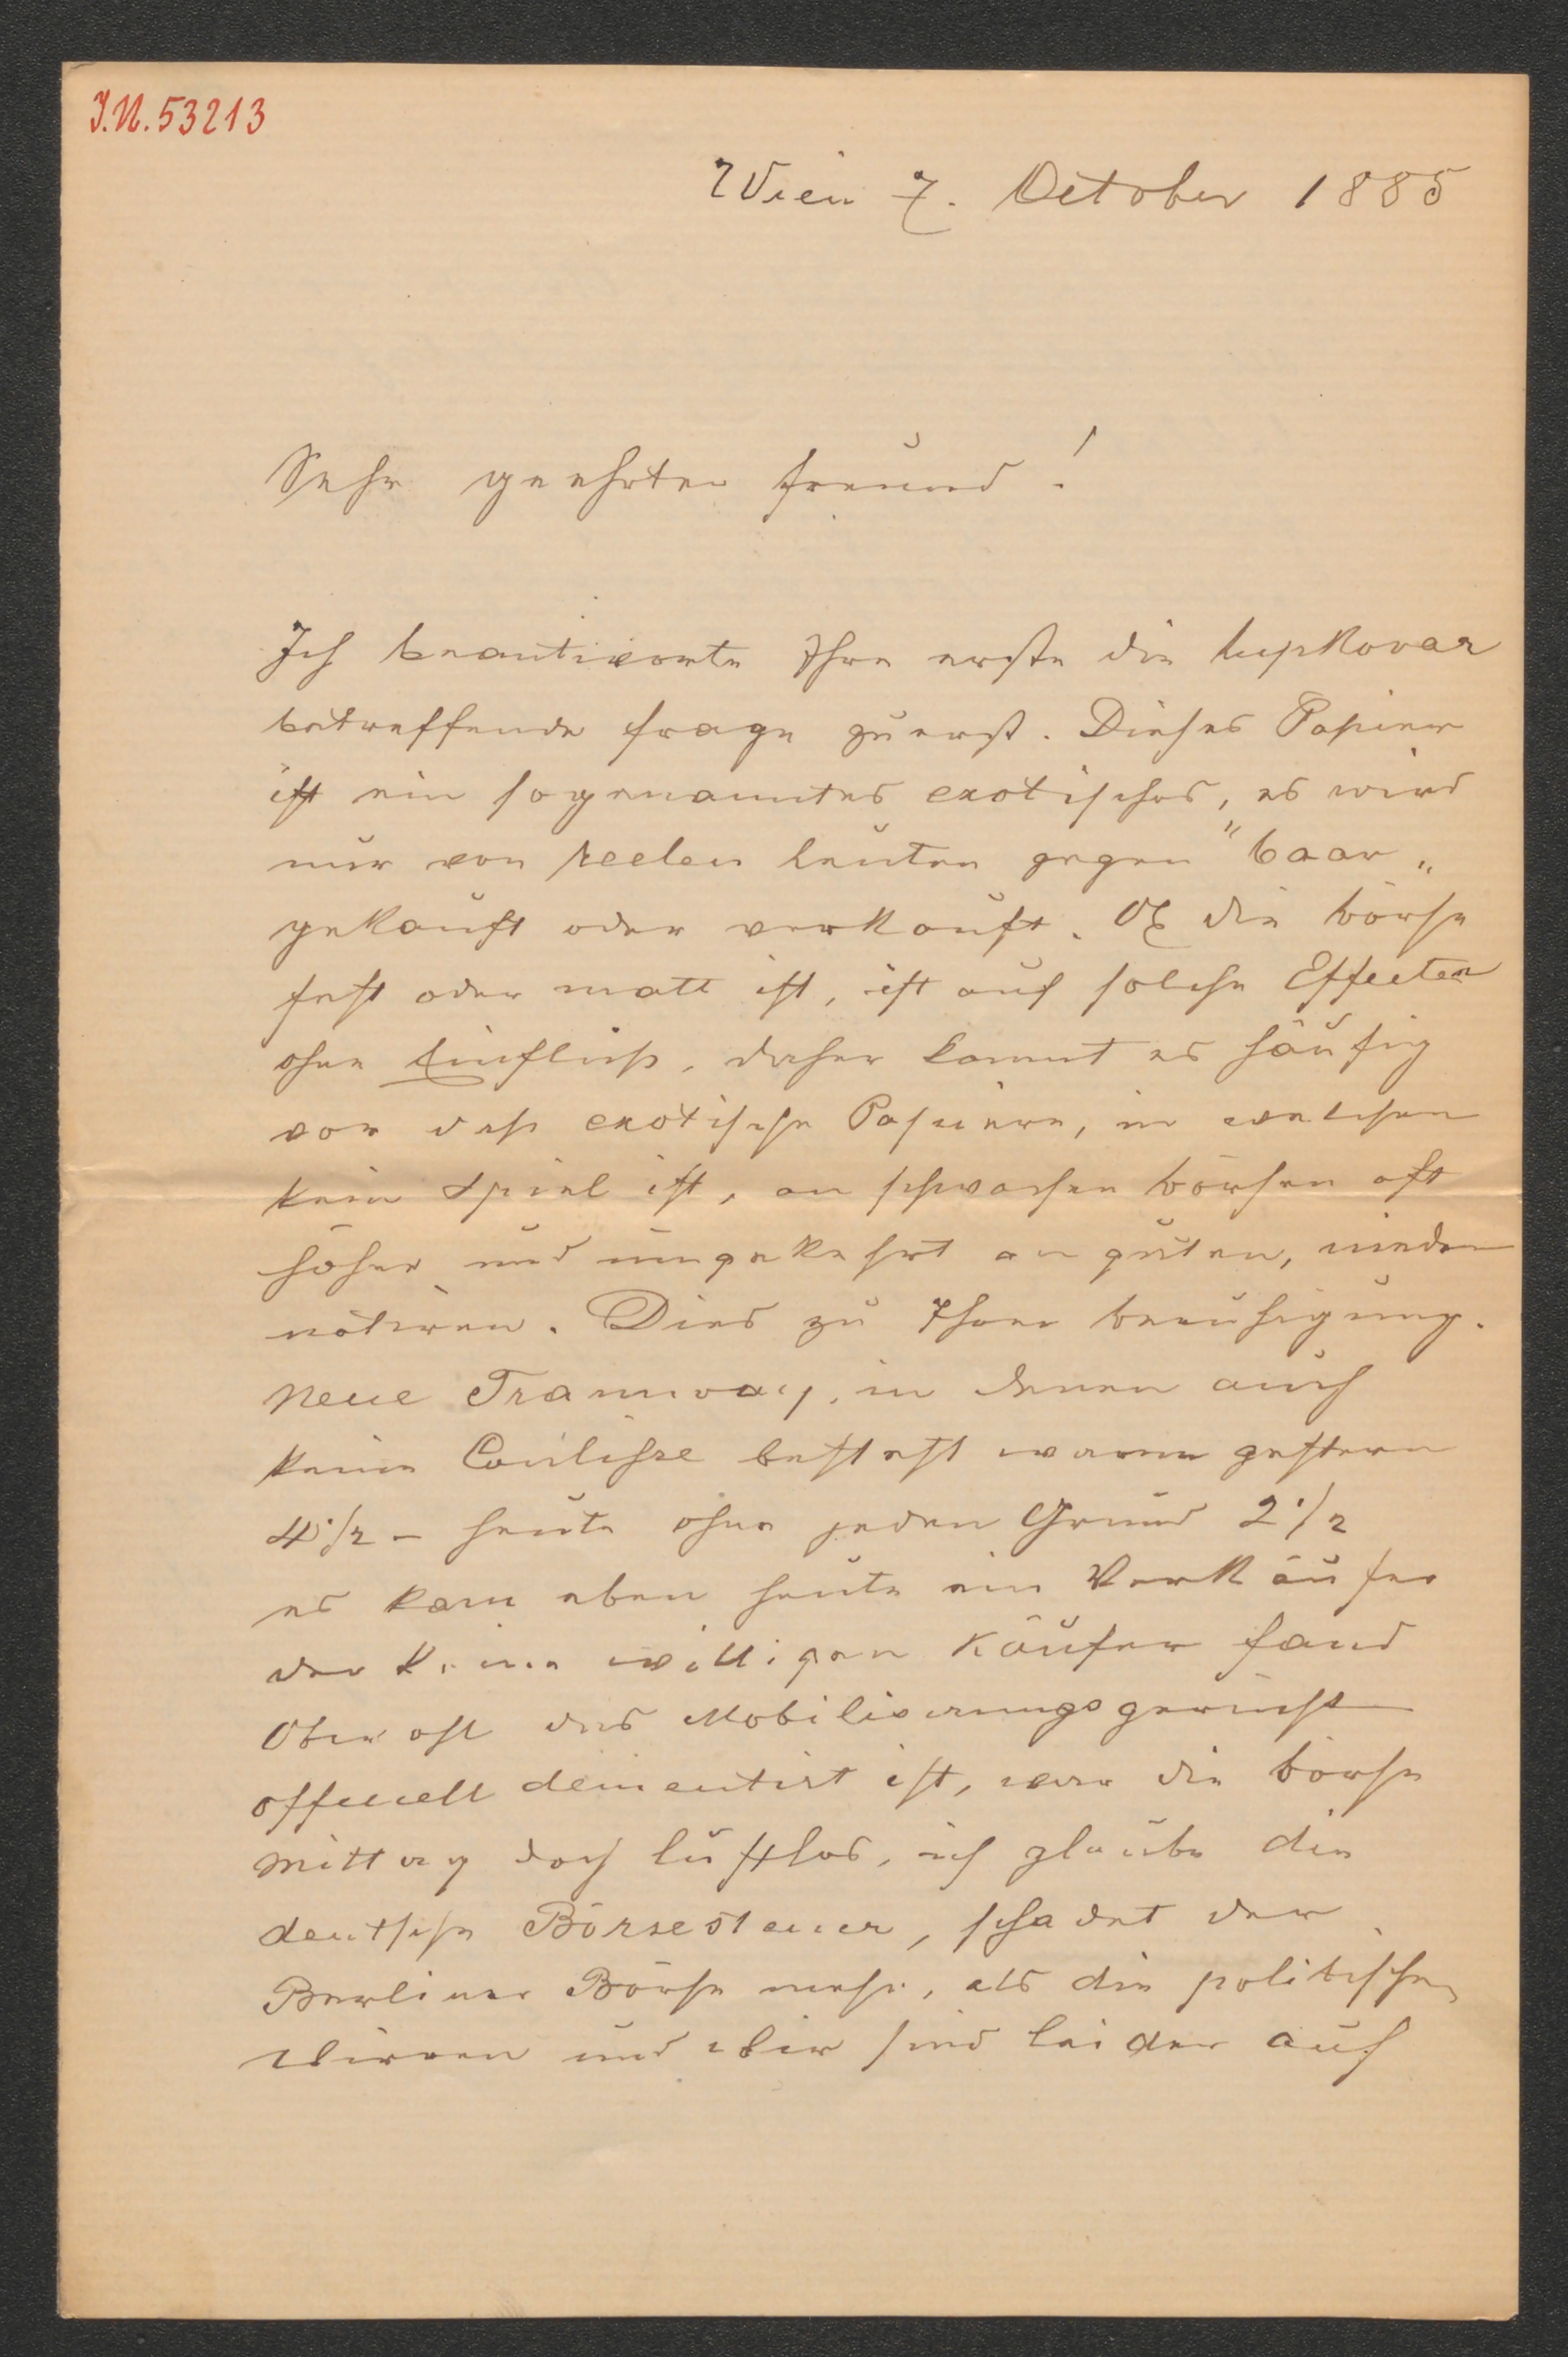 I.N. 53213
Wien 7. October 1885
Sehr geehrter Freund!
Ich beantworte Ihre erste die Lupkovar
betreffende Frage zuerst. Dieses Papier
ist ein sogenanntes exotisches, es wird
nur von reelen Leuten gegen "baar"
gekauft oder verkauft. Ob die Börse
fest oder matt ist, ist auf solche Effecten
ohne Einfluß, daher kommt es häufig
vor daß exotische Papiere, in welchen
kein Spiel ist, an schwachen Börsen oft
höher und umgekehrt an guten, nieder
notiren. Dies zu Ihrer Beruhigung.
Neue Tramway, in denen auch
keine Coulisse besteht waren gestern
4 1/2 – heute ohne jeden Grund 2 1/2
es kam eben heute ein Verkäufer
der keine willigen Käufer fand
das Mobilisirungsgerücht
officiell dementirt ist, war die Börse
Mittag doch lustlos, ich glaube die
deutsche Börsesteuer, schadet der
Berliner Börse mehr, als die politischen
Wirren und wir sind leider auf